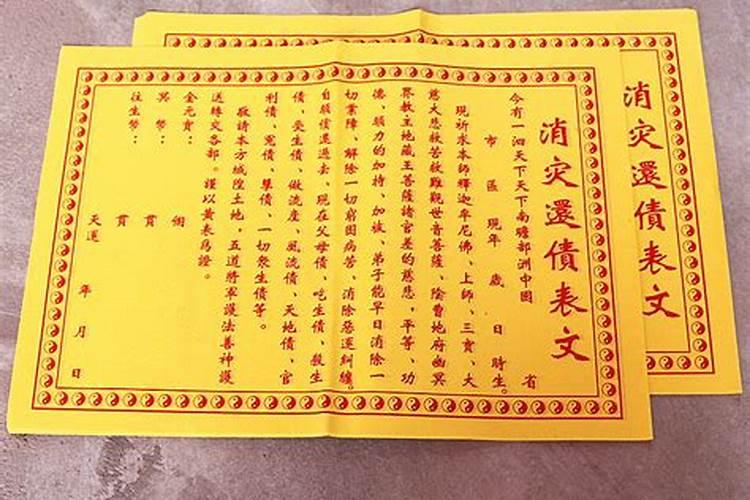 消灾還債表文
消灾還債表文
今有一泗天下天下南瞻部洲中國 省
市 區 現年 歲 日 時生。
現祈求本師釋迦牟尼佛、上師、三寶、大
慈大悲救苦救難觀世音菩薩、陰曹地府幽冥
界教主地藏王菩薩諸官差的慈悲，平等、功
德、願力的加持、加被、弟子能早日消除一
切業障、解除一切窮困病苦、消除惡運糾纏。
自願償還過去、現在父母債、吃生債、殺生
債、受生債、做流產、風流債、天地債、官
利債、冤債、孽債、一切衆生債等。
敬請本方城隍土地，五道將軍護法善神護
送轉交各部。謹以黄表爲證。
金元寶： 個
冥幣： 貫
往生幣： 貫
天運 年 月 日